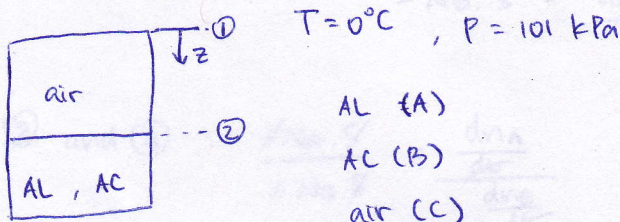 ① T = 0°C , P = 101 kPa
z
air
AL (A)
②
AC (B)
AL , AC
air (C)